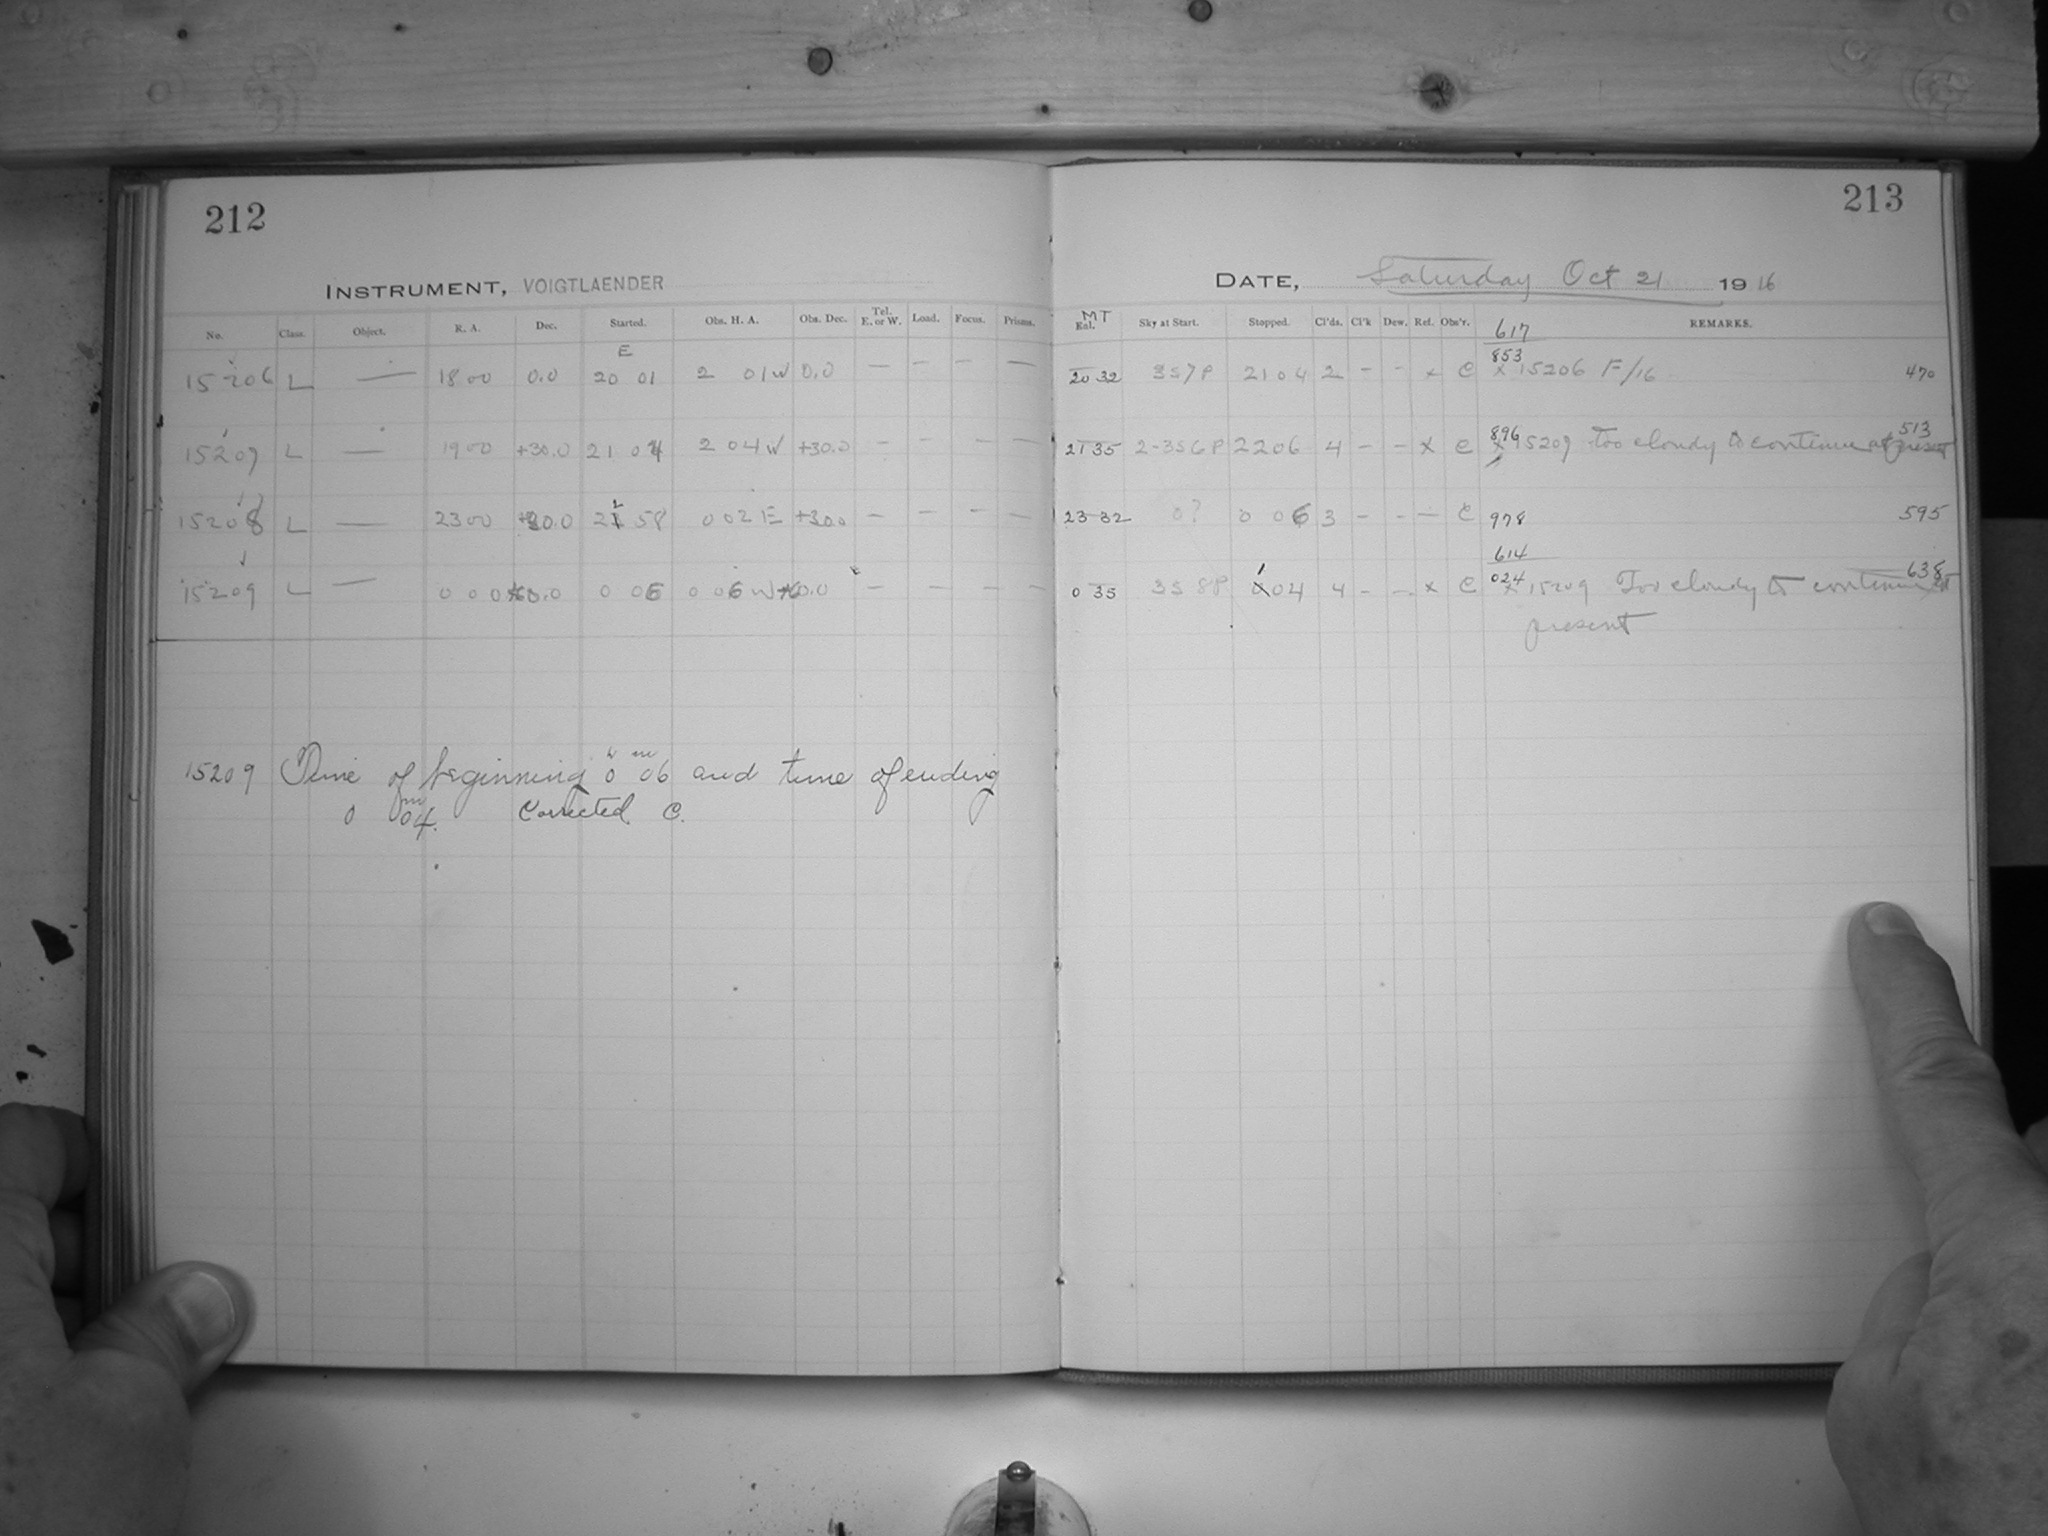 212
INSTRUMENT, VOIGTLAENDER
No. Class. Object. R. A. Dec. Started. Obs. H. A. Obs. Dec. Tel. E. or W. Load. Focus. Prisms.
E
15206 L — 18 00 0.0 20 01 2 01 W 0.0 — — — —
15207 L — 19 00 +30.0 21 04 2 04 W +30.0 — — — —
15208 L — 23 00 +30.0 22 58 0 02 E +30.0 — — — —
15209 L — 0 0 0 +60.0 0 06 0 06 W +60.0 — — — —
15209 Time of beginning 0 h 06 m and time of ending
0 04 m. Corrected C.
213
DATE, Saturday Oct 21 1916
MT
Eal. Sky at Start. Stopped. Cl'ds. Cl'k Dew. Ref. Obs'r. REMARKS.
617
853
20 32 3S7P 21 04 2 - - x C x 15206 F/16 470
896 513
21 35 2-3S6P 22 06 4 - - x C x 15207 too cloudy to continue at present
23 32 0? 0 06 3 - - — C 978 595
614
024 638
0 35 3S 8P 1 04 4 - - x C x 15209 Too cloudy to continue at
present